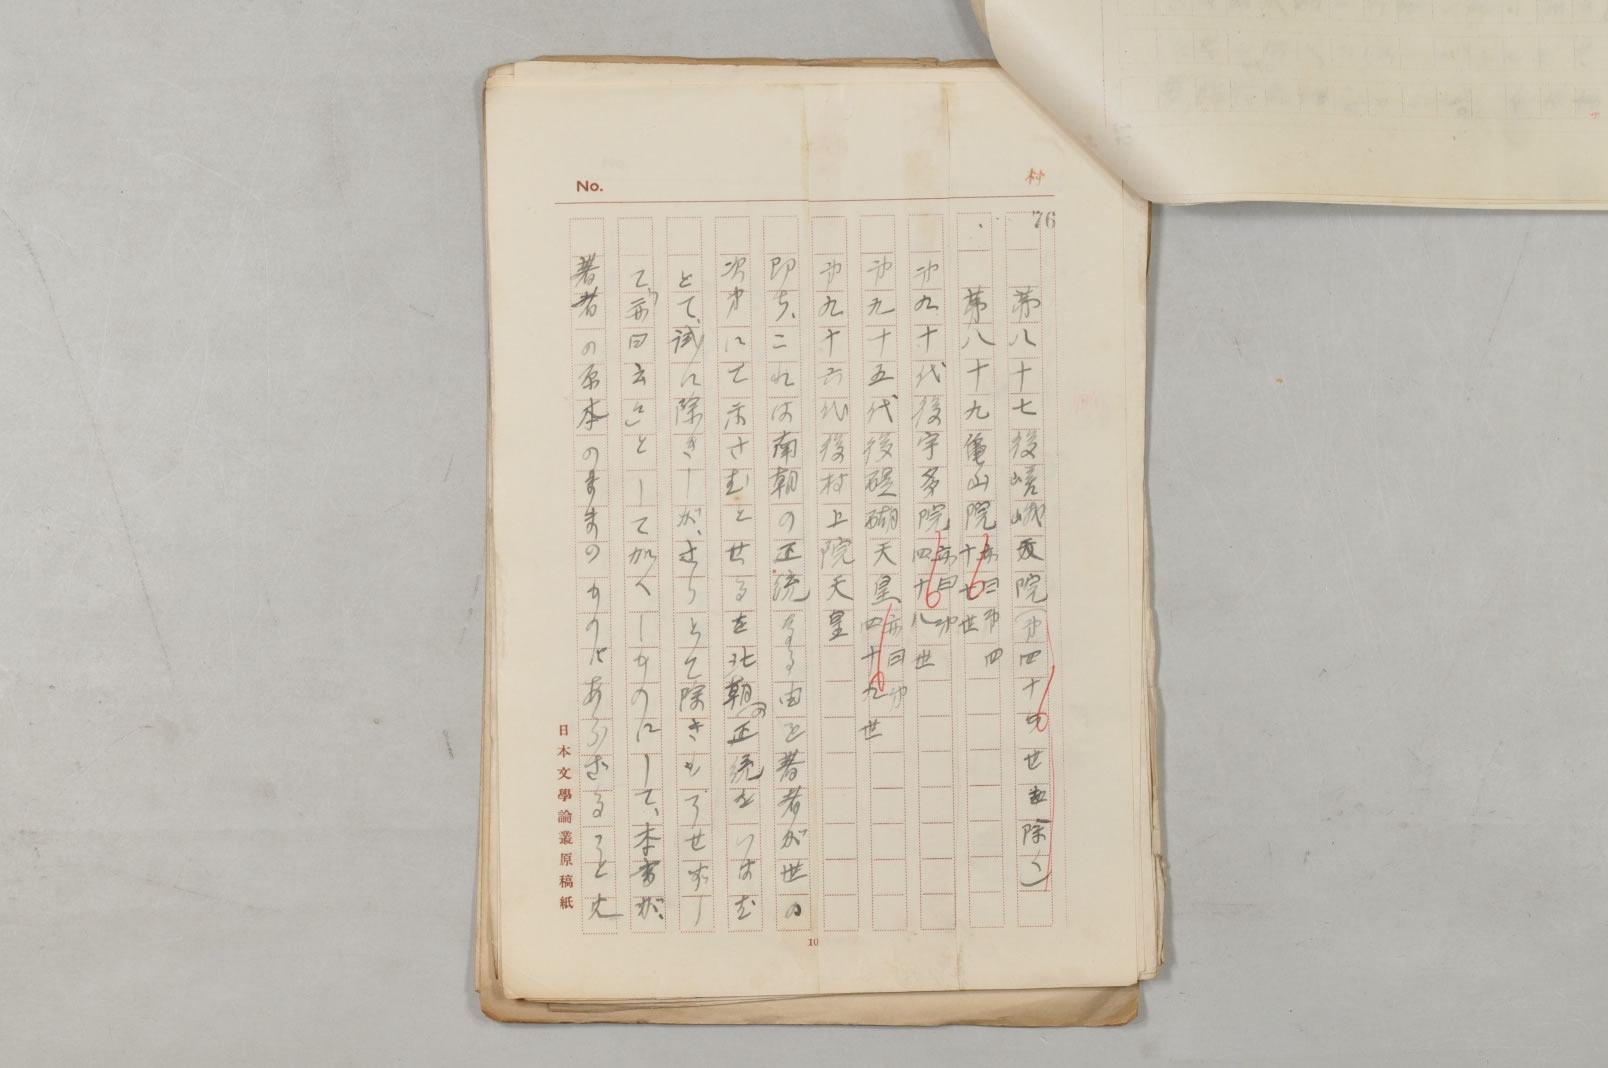 No.
村
76
第八十七後嵯峨天院(第四十七世を除く)
第八十九亀山院亦曰第四十七世
第九十代後宇多院亦曰第四十八世
第九十五代後醍醐天皇亦曰第四十九世
第九十六代後村上院天皇
即ち、これは南朝の正統なる由を著者が世の
次第にて示さむとせるを北朝の正統をいはむ
とて、試に除きしが、さらとて除きもてせずし
て「亦曰云々」として加へしものにして、本書が、
著者の原本のまゝのものにあらざること丈
日本文學論叢原稿紙
10